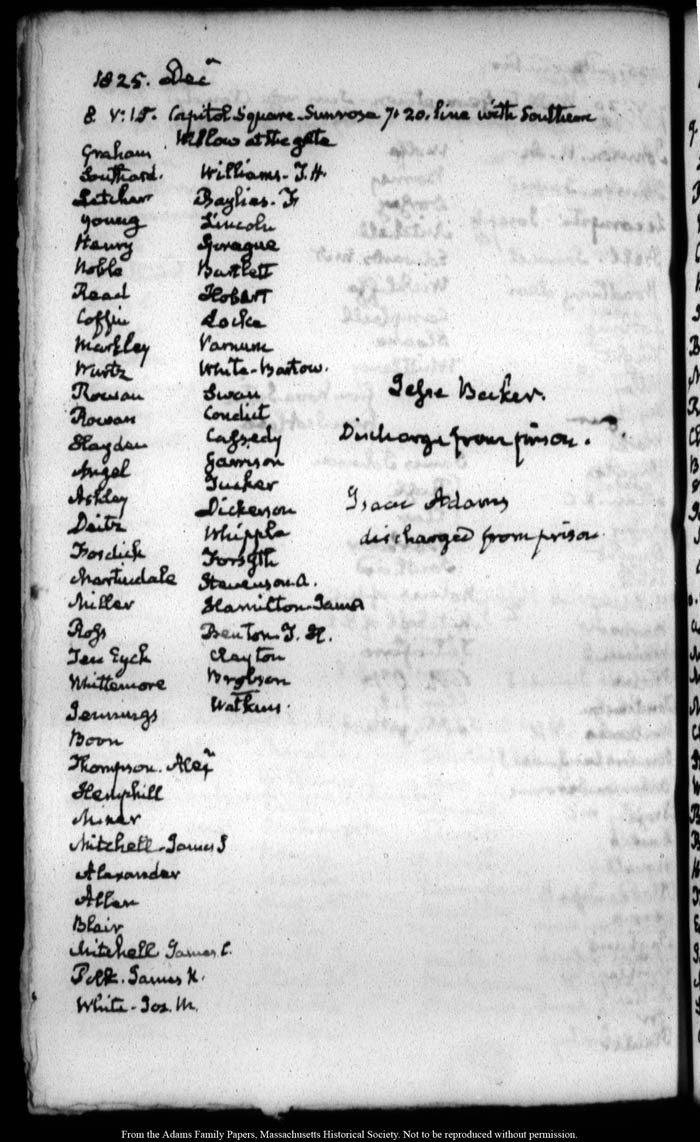 1825. Decr
8. V:15. Capitol Square. Sunrose 7. 20. line with Southern
Willow at the gate
Graham
Southard.
Letcher
Young
Henry
Noble
Read
Coffin
Markley
Wurtz
Rowan
Rowan
Hayden
Angel
Ashley
Deitz
Fosdick
Martindale
Miller
Ross
Ten Eyck
Whittemore
Jennings
Boon
Thompson. Alexr
Hemphill
Miner
Mitchell. James S
Alexander
Allen
Blair
Mitchell James C.
Polk. James K.
White. Jos. M.
Williams. T. H.
Baylies. F
Lincoln
Sprague
Bartlett
Hobart
Locke
Varnum
White. Bartow.
Swan
Condict
Cassedy
Garrison
Tucker
Dickerson
Whipple
Forsyth
Stevenson A.
Hamilton James
Benton. T. H.
Clayton
Brobson
Watkins.
Jesse Becker.
Discharge from prison.
Isaac Adams
discharged from prison
From the Adams Family Papers, Massachusetts Historical Society. Not to be reproduced without permission.